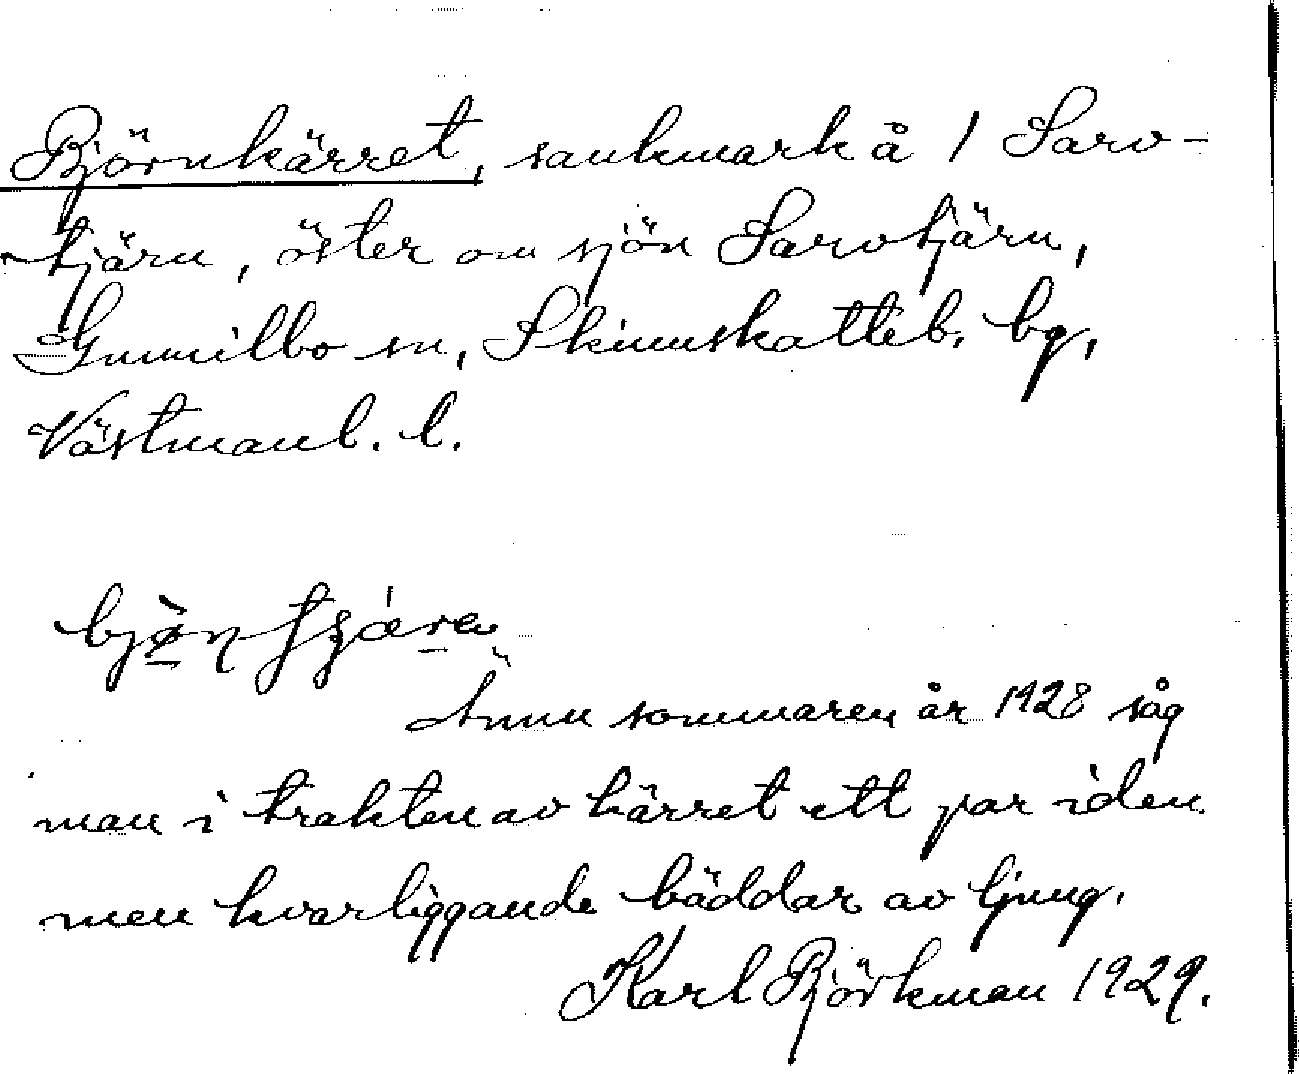 Björnkärret, sankmark å 1 Sarv-
tjärn, öster om sjön Sarvtjärn,
Gunnilbo sn, Skinnskatteb. bg,
Västmanl. l.
Ännu sommaren år 1928 såg
man i trakten av kärret ett par iden
men kvarliggande bäddar av ljung.
Karl Björkman 1929.